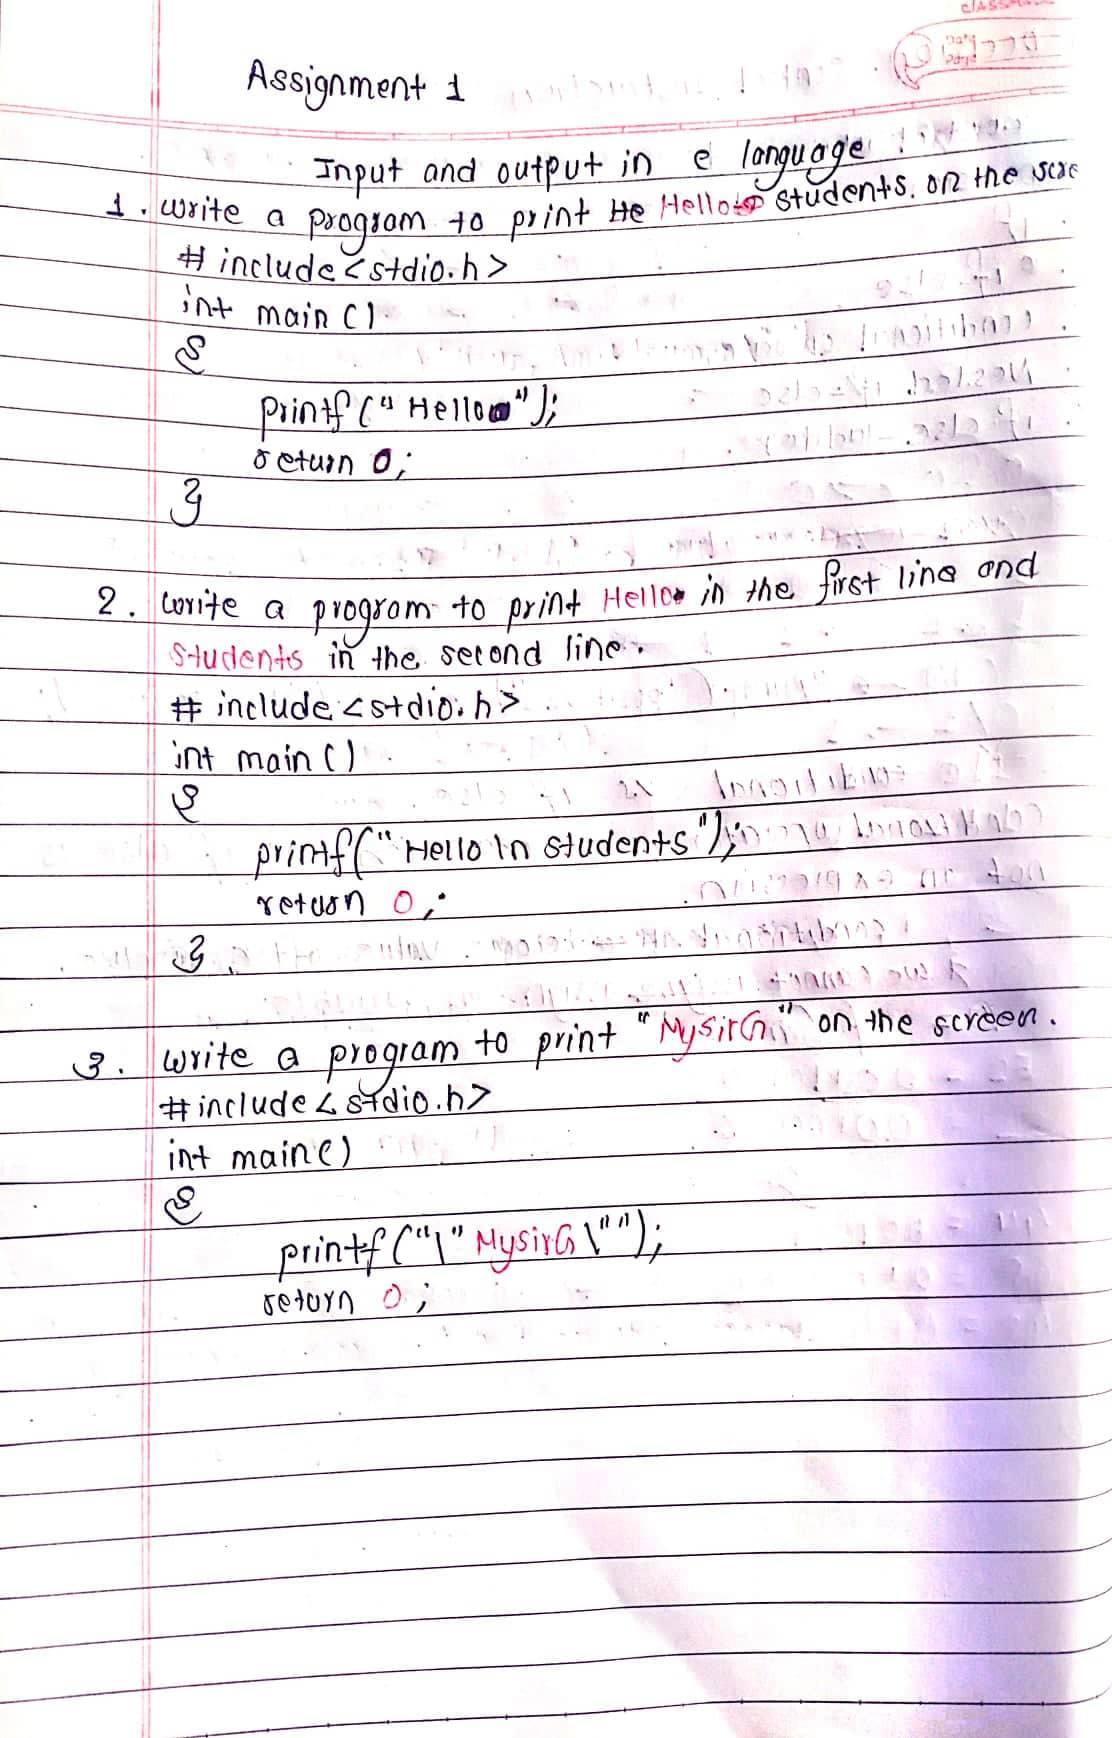 classmate
Date
Page
Assignment 1
Input and output in c language
1. write a program to print He Hello students. on the scre
# include <stdio.h>
int main ()
{
printf (" Hello");
return 0;
}
2. write a program to print Hello in the first line and
Students in the second line.
# include <stdio.h>
int main ()
{
printf(" Hello \n students");
return 0;
}
3. write a program to print "MysirG" on the screen.
#include <stdio.h>
int main()
{
printf ("\" MysirG \"");
return 0;